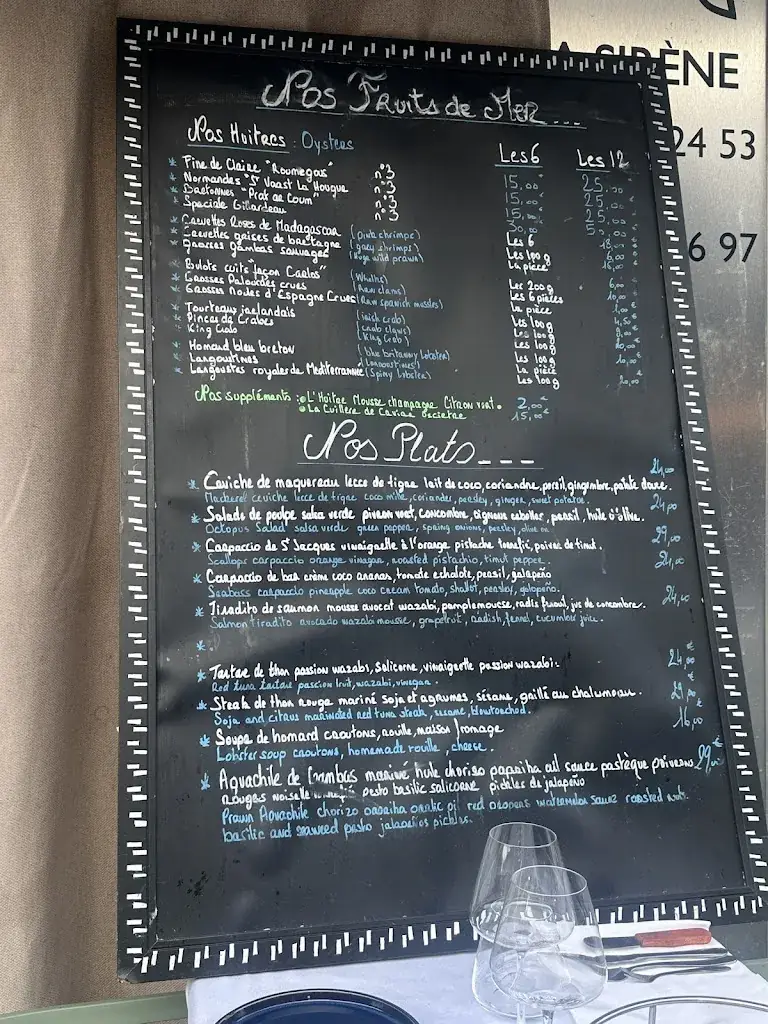 Nos Fruits de Mer
A SIRÈNE
24 53
6 97
Nos Huitres : Oysters Les 6 Les 12
* Fine de Claire "Roumegous" n°3 15,00 25,00
* Normandes "St Vaast La Hougue n°3 15,00 25,00
* Bretonnes "Prat ar Coum" n°3 15,00 25,00
* Speciale Gillardeau n°3 30,00
* Crevettes Roses de Madagascar (pink shrimps) Les 6
* Crevettes grises de bretagne (gray shrimps) Les 100g
* Grosses gambas sauvages (Huge wild prawn) La pièce
* Bulots cuits "façon Carlos" (Whelks) Les 200g 6,00
* Grosses Palourdes crues (Raw clams) Les 6 pièces
* Grosses Moules d'Espagne Crues (Raw spanish mussles) La pièce
* Tourteau irelandais (irish crab) Les 100g
* Pinces de Crabes (crab claws) Les 100g
* King Crab (King Crab) Les 100g
* Homard bleu breton (blue britanny lobster) Les 100g
* Langoustines (Langoustines) La pièce
* Langoustes royales de Mediterrannée (Spiny Lobster) Les 100g
Nos suppléments : L'Huitre Mousse champagne Citron vert. 2,00€
La Cuillère de Caviar oscietre 15,00€
Nos Plats___
* Ceviche de maquereau lecce de tigre lait de coco, coriandre, persil, gingembre, patate douce. 24,00
Mackerel ceviche lecce de tigre coco milk, coriander, parsley, ginger, sweet potatoe.
* Salade de poulpe salsa verde piveron vert, concombre, oignons cebettes, persil, huile d'olive. 24,00
Octopus Salad salsa verde green pepper, spring onions, parsley, olive oil
* Carpaccio de St Jacques vinaigrette à l'orange pistache torrefié, poivre de timut. 29,00
Scallops carpaccio orange vinegar, roasted pistachio, timut pepper.
* Carpaccio de bar crème coco ananas, tomate echalote, persil, jalapeño 24,00
Seabass carpaccio pineapple coco cream tomato, shallot, parsley, jalopeno.
* Tiradito de saumon mousse avocat wazabi, pamplemousse, radis fenouil, jus de concombre. 24,00
Salmon tiradito avocado wazabi mousse, grapefruit, radish, fennel, cucumber juice.
*
* Tartare de thon passion wazabi, Salicorne, vinaigrette passion wazabi. 24,00€
Red tuna tartare passion fruit, wazabi, vinegar.
* Steak de thon rouge mariné soja et agrumes, sésame, grillé au chalumeau. 29,00€
Soja and citrus marinated red tuna steak, sesame, blowtorched.
* Soupe de homard croutons, rouille maison fromage 16,00
Lobster soup croutons, homemade rouille, cheese.
* Aguachile de Gambas mariné huile chorizo paprika ail sauce pastèque poivrons 29,00€
rouges noisette pesto basilic salicorne pickles de jalapeño
Prawn Aguachile chorizo paprika garlic oil red peppers watermelon sauce roasted nuts.
basilic and seaweed pesto jalapeños pickles.